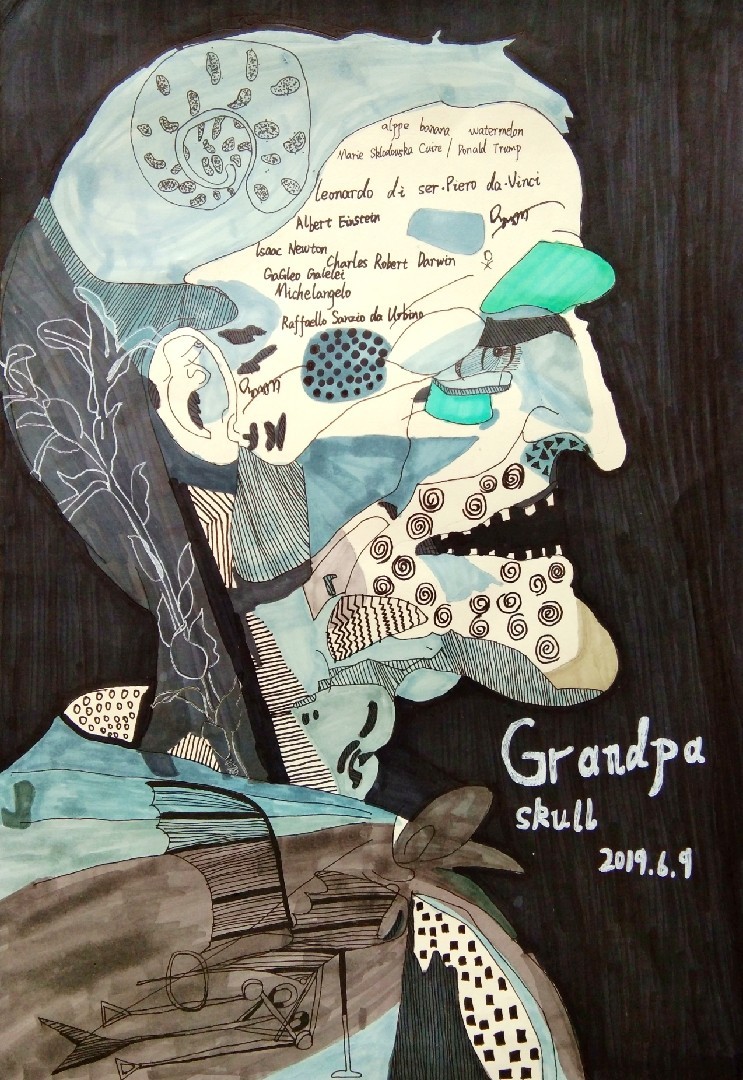 alppe banana watermelon
Marie Skłodowska Curie / Donald Trump
Leonardo di ser.Piero da.Vinci
Albert Einstein
Isaac Newton
Charles Robert Darwin
GaGleo Galelei
Michelangelo
Raffaello Sanzio da Urbino
Grandpa
skull
2019.6.9